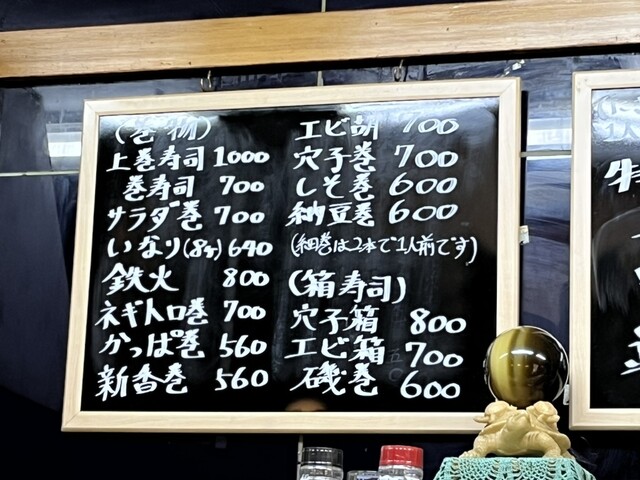 (巻物)
上巻寿司 1000
巻寿司 700
サラダ巻 700
いなり(8ケ) 640
鉄火 800
ネギトロ巻 700
かっぱ巻 560
新香巻 560
エビ胡 700
穴子巻 700
しそ巻 600
納豆巻 600
(細巻は2本で1人前です)
(箱寿司)
穴子箱 800
エビ箱 700
磯巻 600